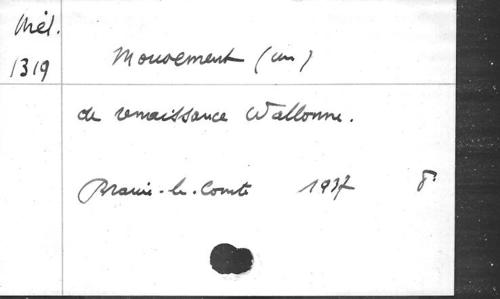 Mél.
1319
Mouvement (un)
de renaissance Wallonne.
Braine-le-Comte 1937 8°